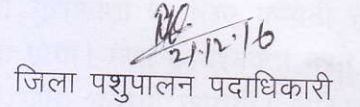 21.12.16
जिला पशुपालन पदाधिकारी